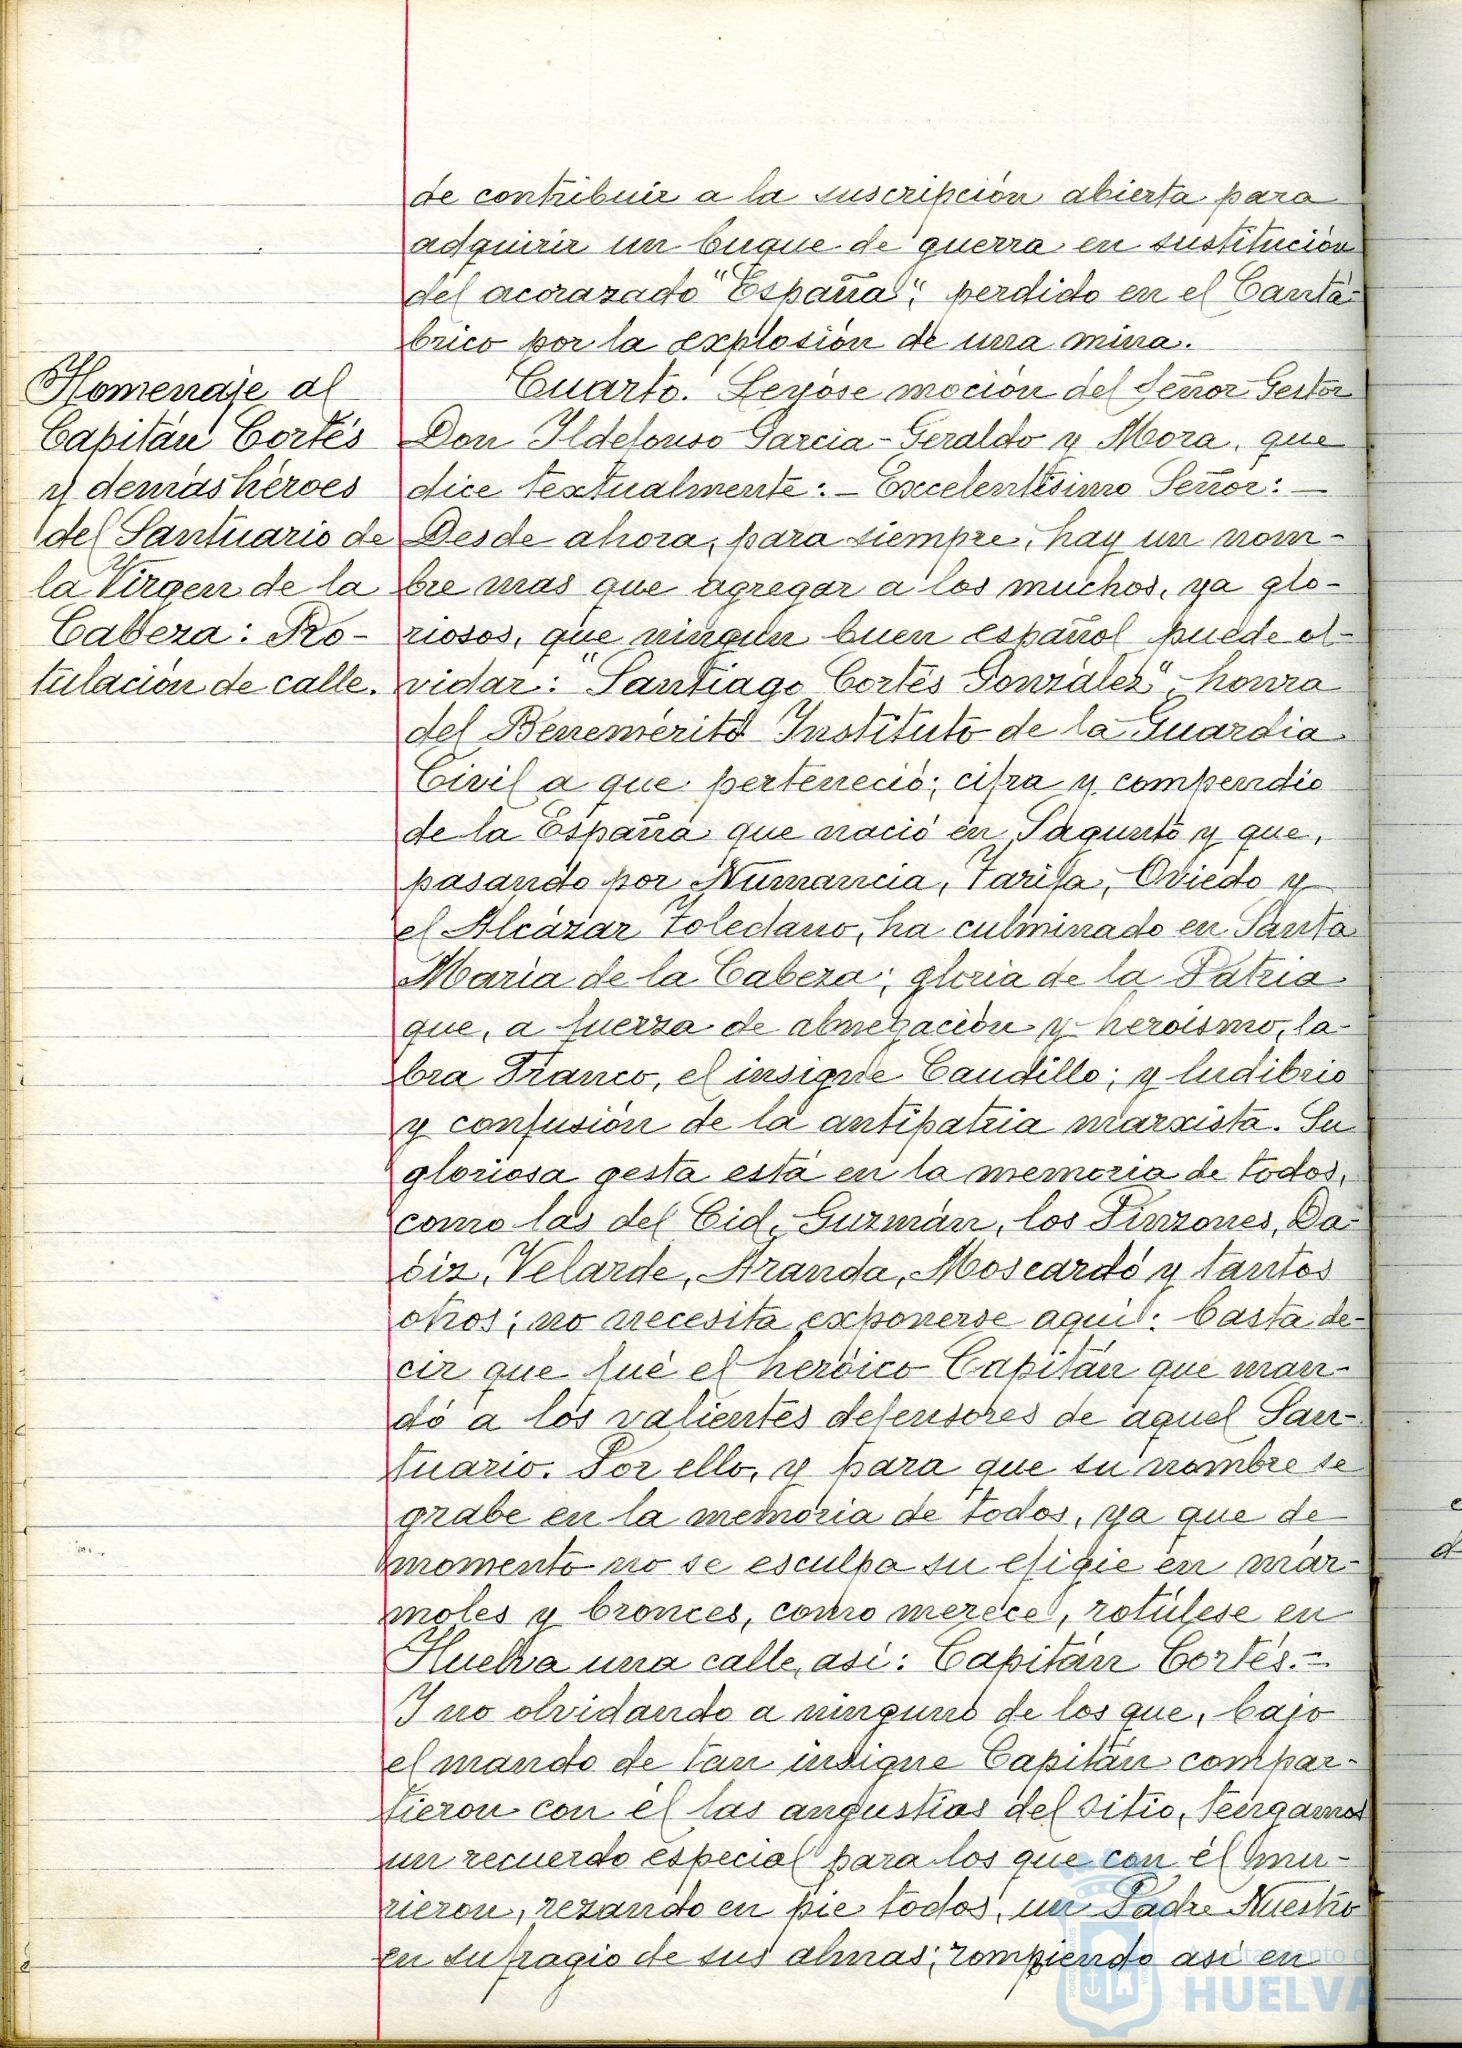 de contribuir a la suscripción abierta para
adquirir un buque de guerra en sustitución
del acorazado "España", perdido en el Cantá-
brico por la explosión de una mina.
Homenaje al
Capitán Cortés
y demás héroes
del Santuario de
la Virgen de la
Cabeza: Ro-
tulación de calle.
Cuarto. Leyóse moción del Señor Gestor
Don Ildefonso García-Geraldo y Mora, que
dice textualmente:- Excelentísimo Señor:-
Desde ahora, para siempre, hay un nom-
bre mas que agregar a los muchos, ya glo-
riosos, que ningún buen español puede ol-
vidar: "Santiago Cortés González", honra
del Benemérito Instituto de la Guardia
Civil a que perteneció; cifra y compendio
de la España que nació en Sagunto y que,
pasando por Numancia, Tarifa, Oviedo y
el Alcázar toledano, ha culminado en Santa
María de la Cabeza; gloria de la Patria
que, a fuerza de abnegación y heroísmo, la-
bra Franco, el insigne Caudillo; y ludibrio
y confusión de la antipatria marxista. Su
gloriosa gesta está en la memoria de todos,
como las del Cid, Guzmán, los Pinzones, Da-
oiz, Velarde, Aranda, Moscardó y tantos
otros; no necesita exponerse aquí: basta de-
cir que fué el heróico Capitán que man-
dó a los valientes defensores de aquel San-
tuario. Por ello, y para que su nombre se
grabe en la memoria de todos, ya que de
momento no se esculpa su efigie en már-
moles y bronces, como merece, rotúlese en
Huelva una calle, así: Capitán Cortés.-
Y no olvidando a ninguno de los que, bajo
el mando de tan insigne Capitán compar-
tieron con él las angustias del sitio, tengamos
un recuerdo especial para los que con él mu-
rieron, rezando en pie todos, un Padre Nuestro
en sufragio de sus almas; rompiendo así en
Ayuntamiento de
HUELVA